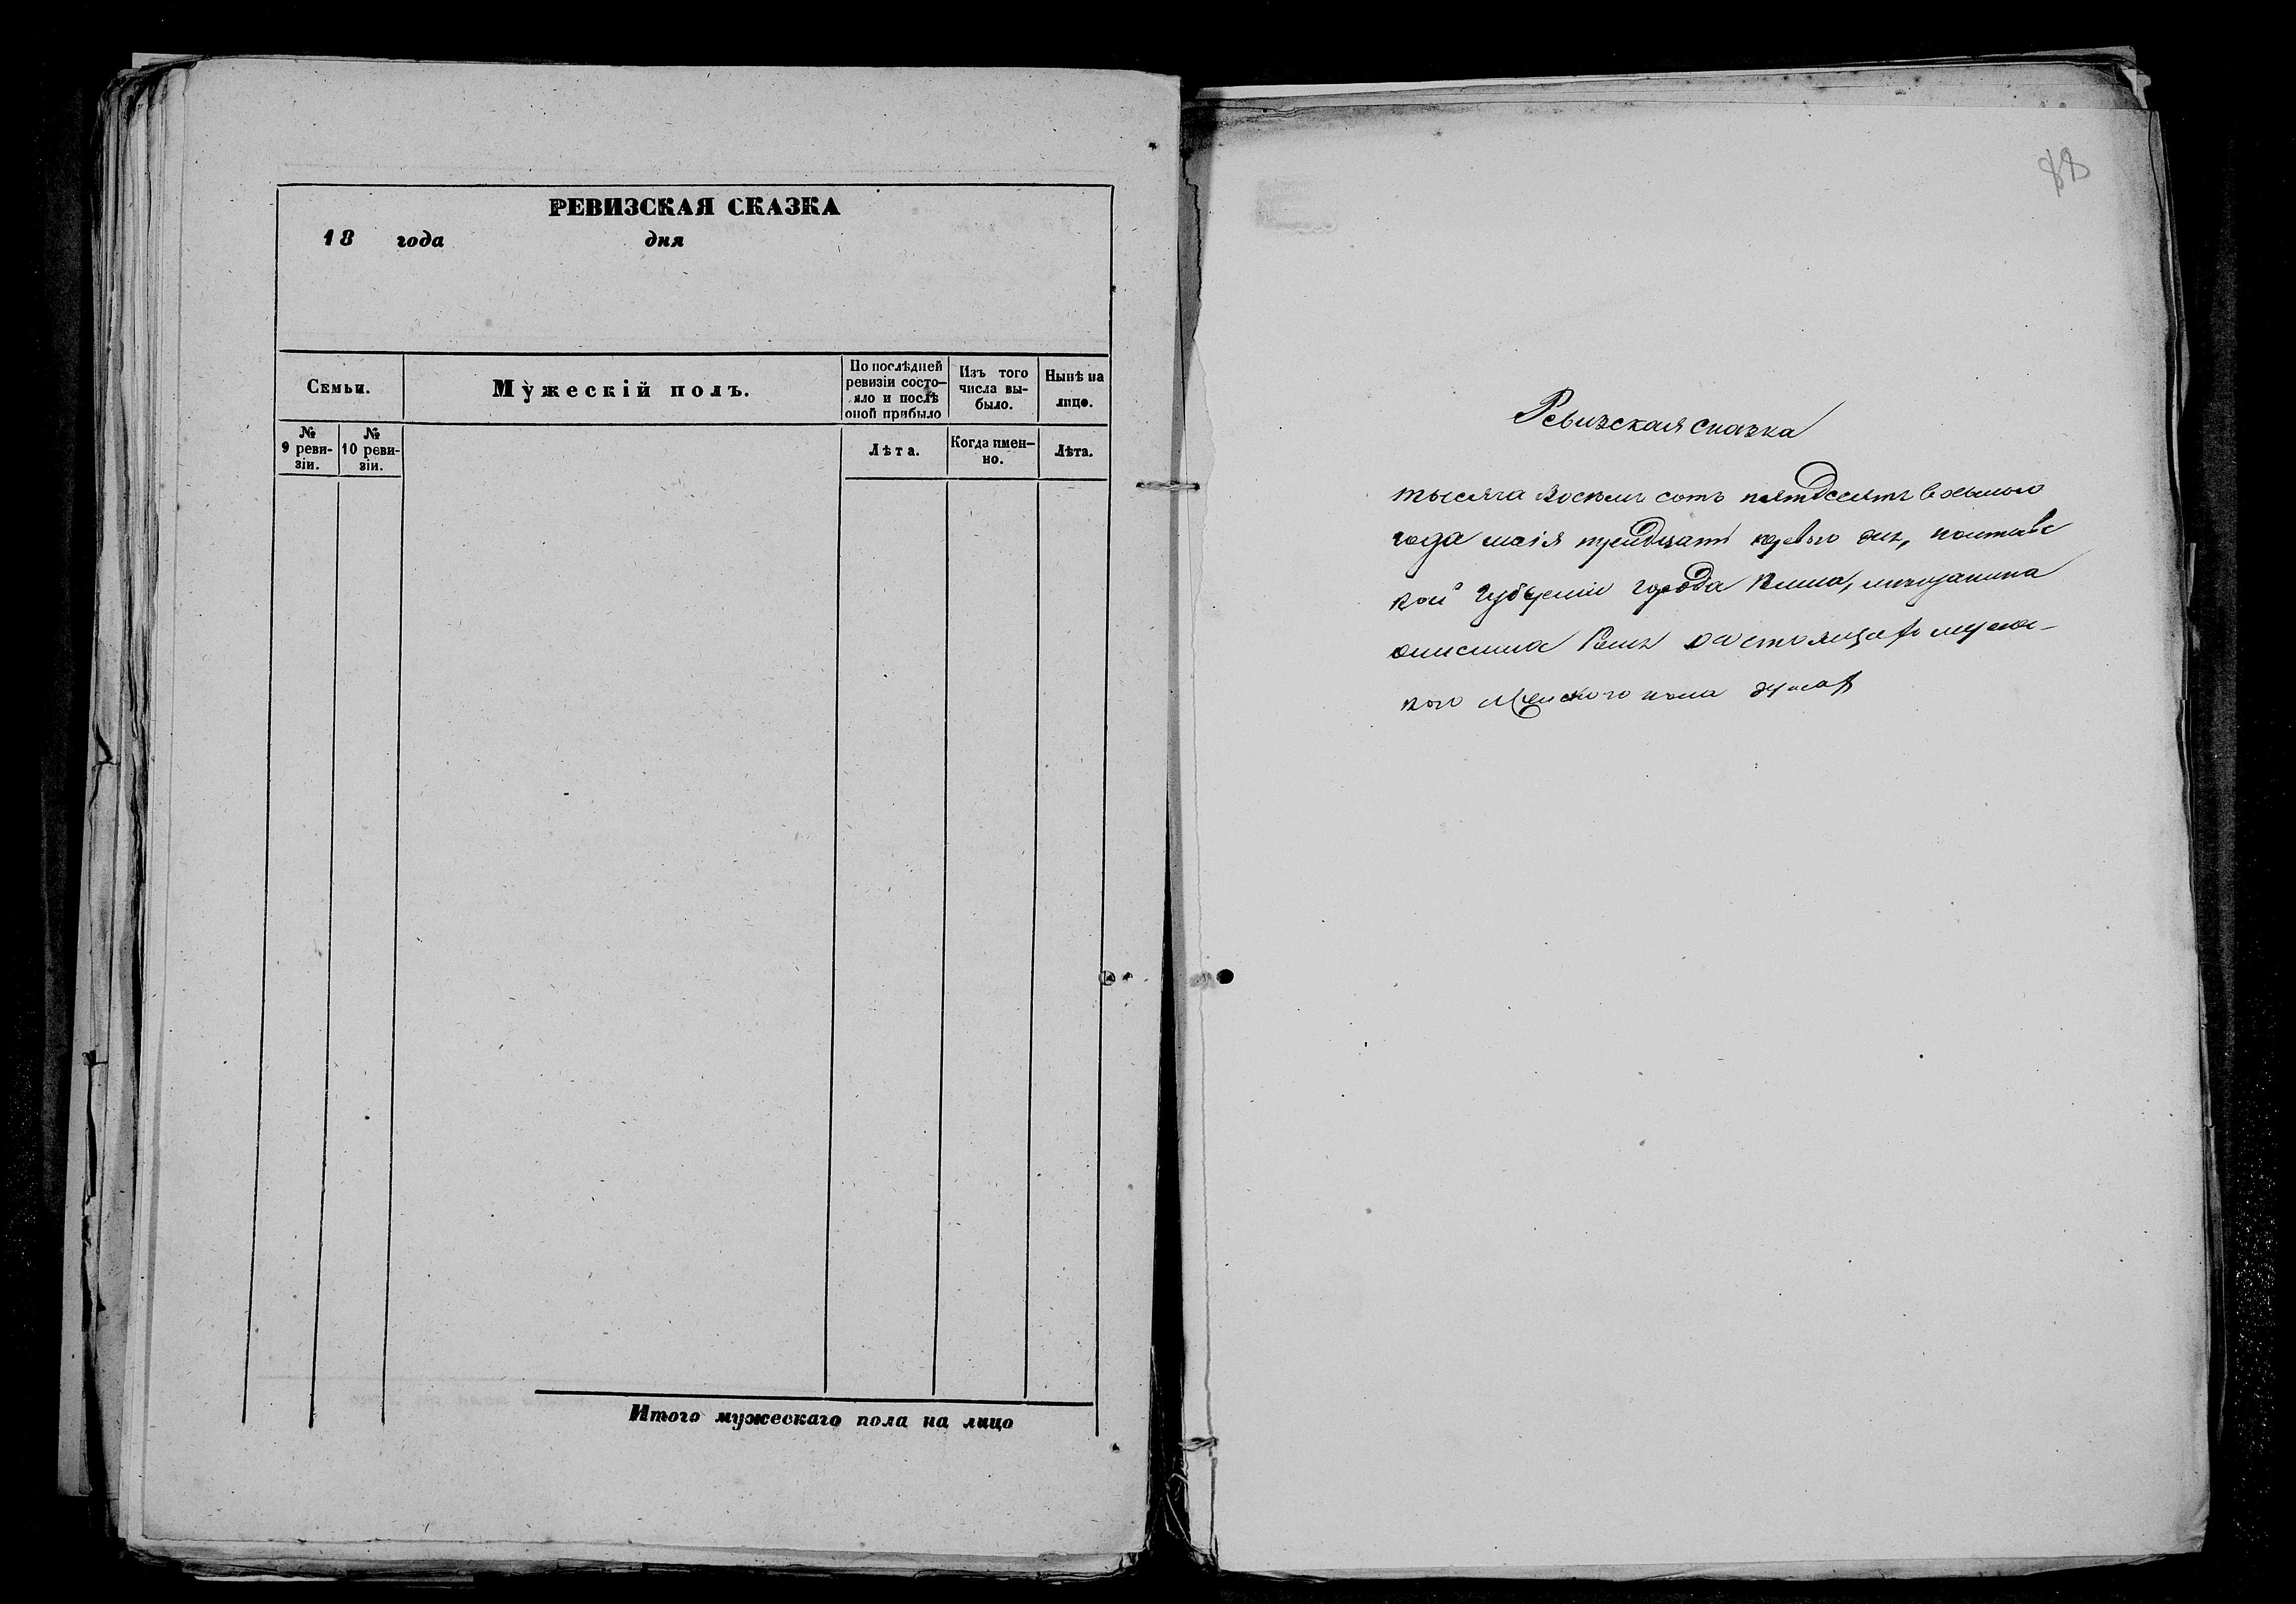 РЕВИЗСКАЯ СКАЗКА
18 года дня
Семьи.
Мужескій полъ.
По послѣдней ревизіи состо-
яло и послѣ
оной прибыло
Изъ того
числа вы-
было.
Нынѣ на
лицо.
№
9 реви-
зіи.
№
10 реви-
зіи.
Лѣта.
Когда имен-
но.
Лѣта.
Итого мужескаго пола на лицо
88
Ревизская сказка
тысяча восемь сотъ пятдесятъ восьмого
года маія тридцать первого дня, полтавс
кой Губерніи города
кого женского пола